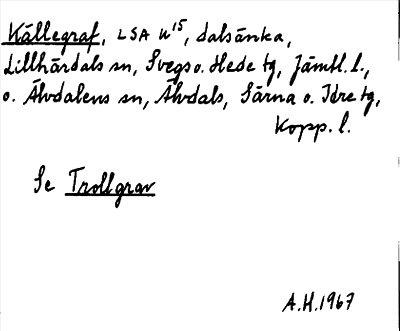 Källegraf, LSA U15, dalsänka,
Lillhärdals sn, Svegs o. Hede tg, Jämtl. l.,
o. Älvdalens sn, Älvdals, Särna o. Idre tg,
Kopp. l.
Se Trollgrav
A.H. 1967